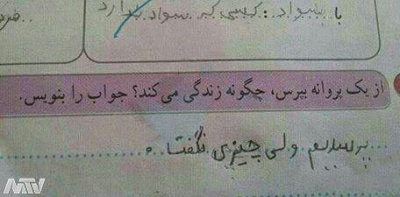 با سواد: کسی که سواد دارد
از یک پروانه بپرس، چگونه زندگی می‌کند؟ جواب را بنویس.
پرسیدیم ولی چیزی نگفتا.
MTV